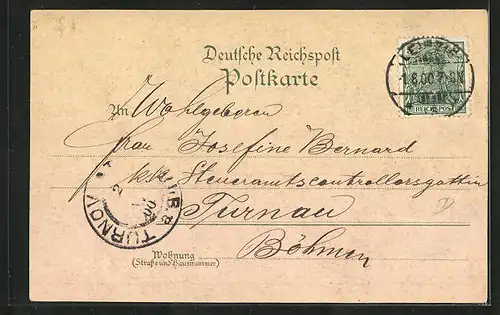 Deutsche Reichspost
Postkarte
LEIPZIG
1.6.00.7-8N
REICHSPOST
An Wohlgeboren
Frau Josefine Bernard
k.k. Steueramtscontrollorsgattin
Turnau
Böhmen
TURNOV
Wohnung
(Straße und Hausnummer)
D